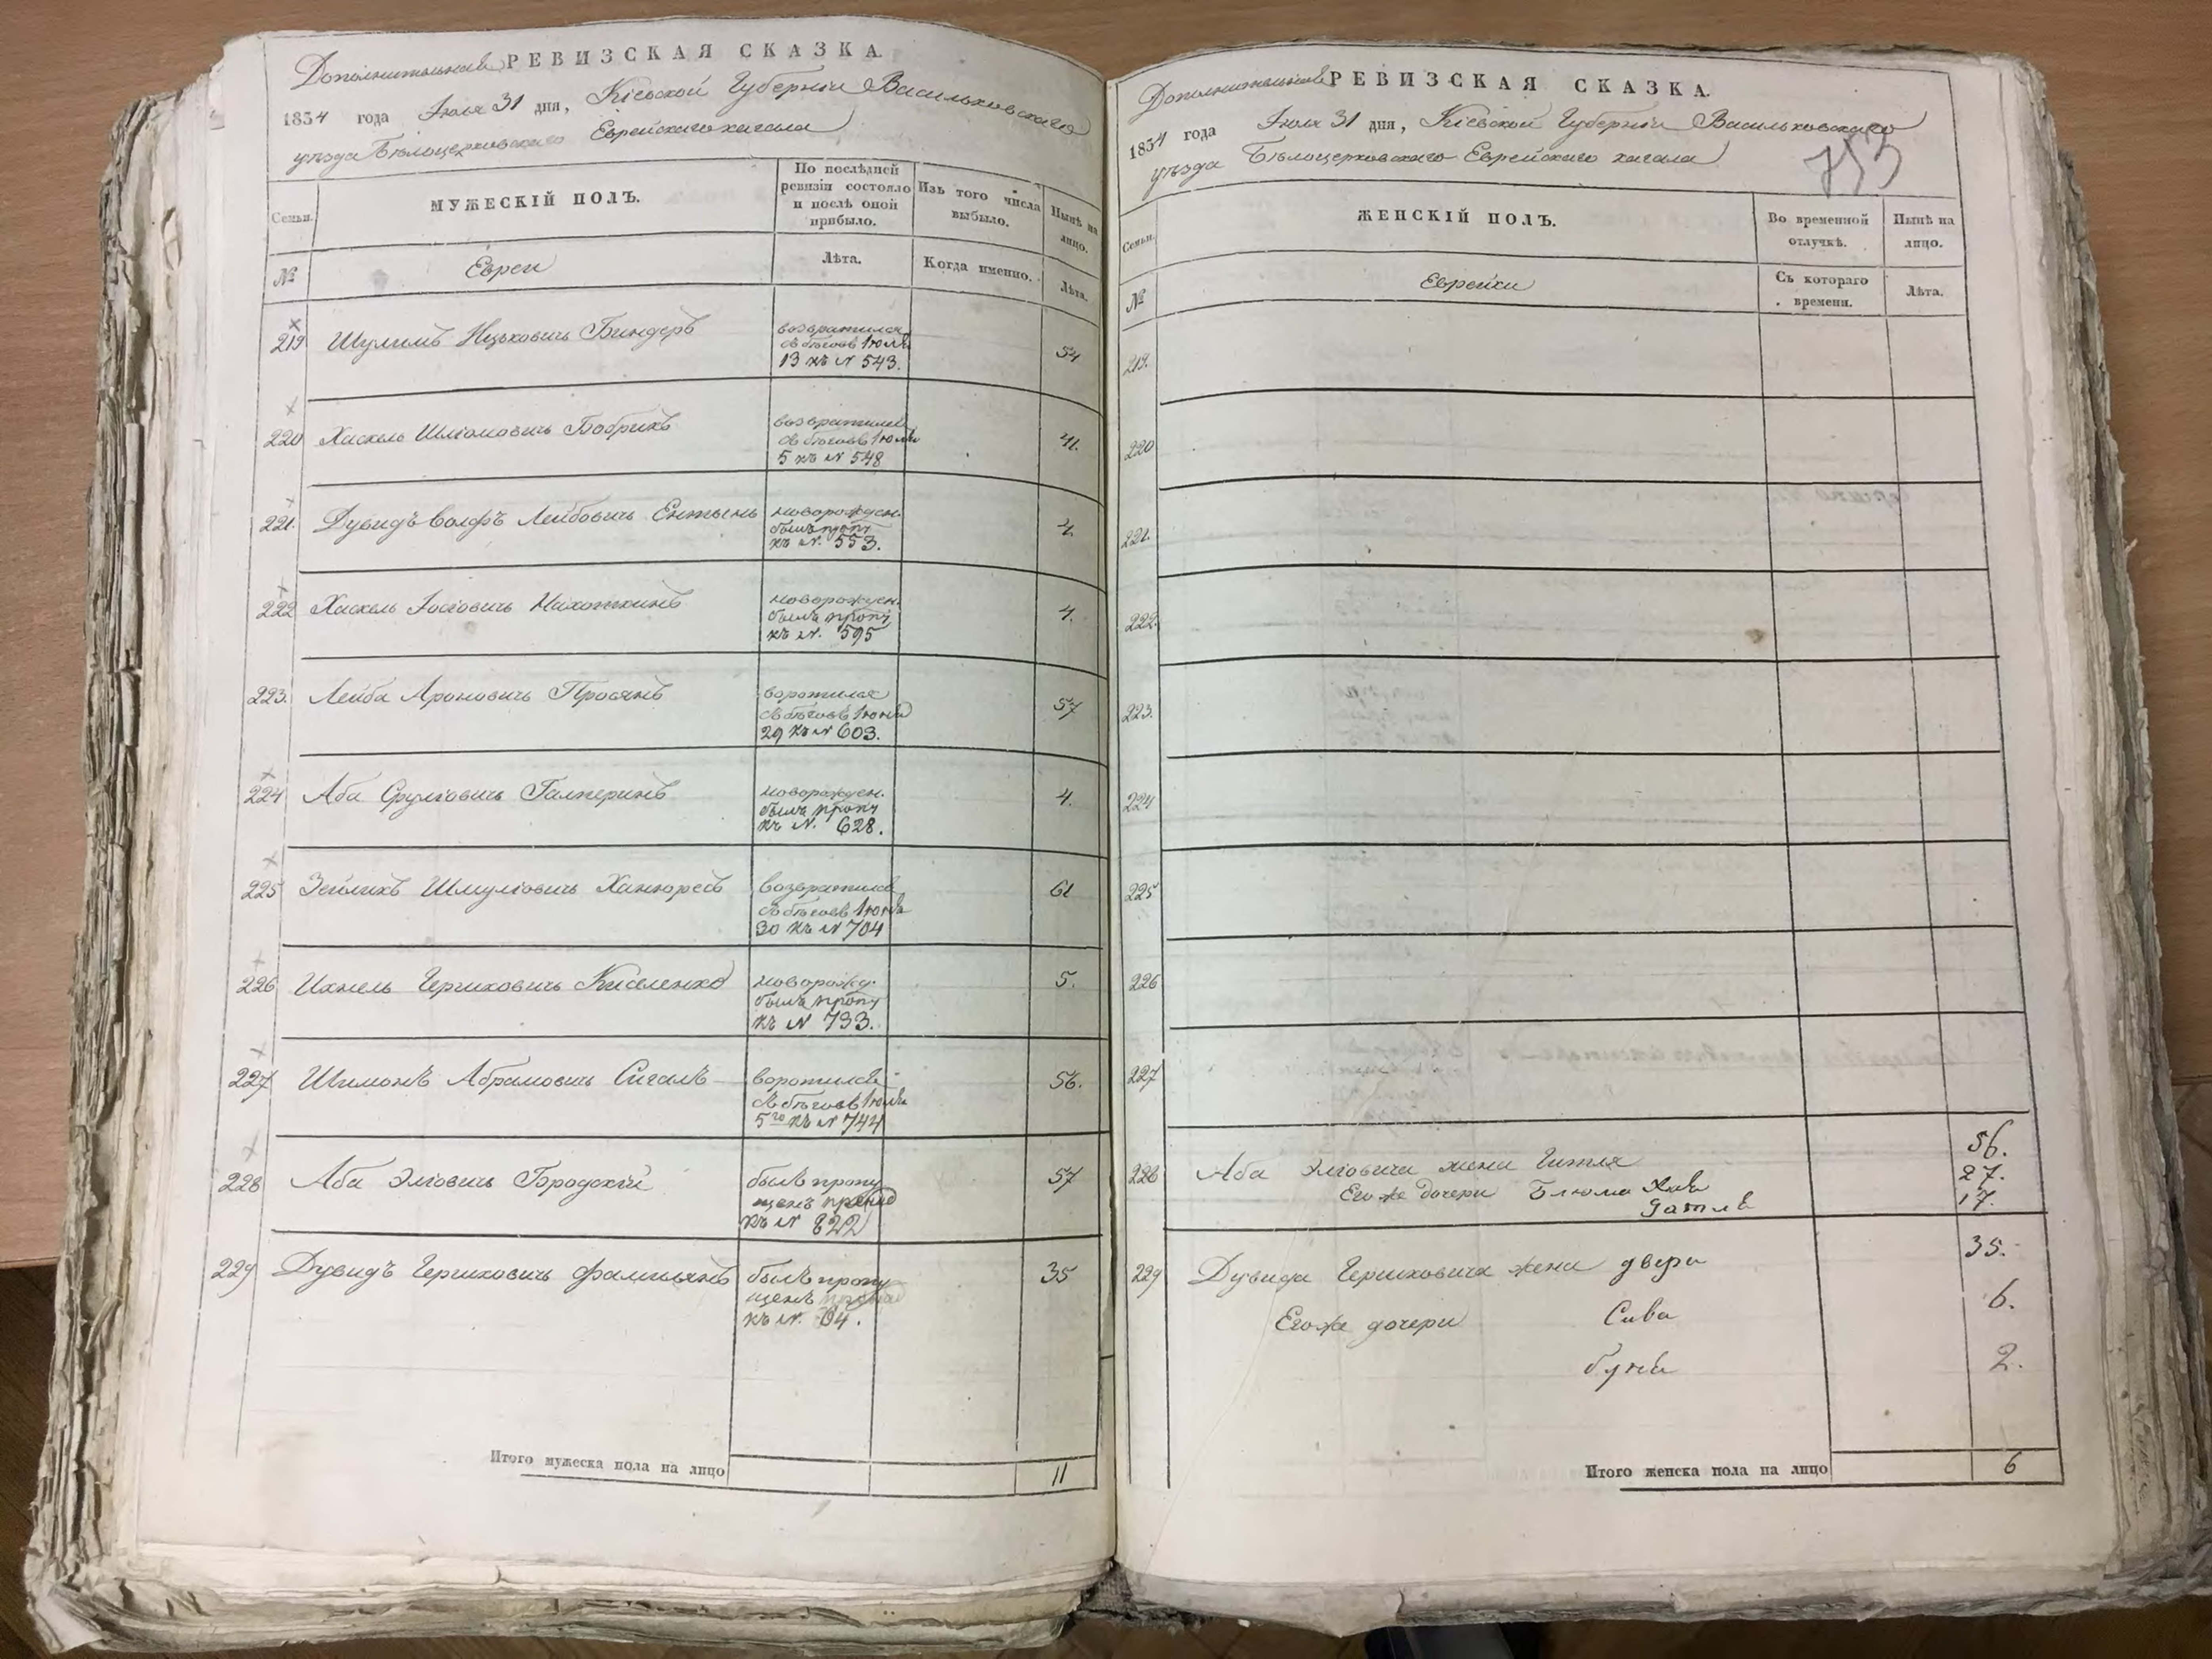 Дополнительная РЕВИЗСКАЯ СКАЗКА.
1834 года Июля 31 дня, Кіевской Губерніи Васильковскаго
уѣзда Бѣлоцерковскаго Еврейскаго кагала
Семьи.
МУЖЕСКІЙ ПОЛЪ.
По послѣдней
ревизіи состояло
и послѣ оной
прибыло.
Изъ того числа
выбыло.
Нынѣ на
лицо.
№
Евреи
Лѣта.
Когда именно.
Лѣта.
219
Шулимъ Ицьковичъ Биндеръ
возвратился
съ бѣговъ Іюля
13 къ № 543.
54
220
Хаскель Шліомовичъ Бобрикъ
возвратился
съ бѣговъ Іюля
5 къ № 548
41.
221.
Дувидъ Волфъ Лейбовичъ
новорожден.
былъ проп
къ №. 553.
4.
222
Хаскель Іосіовичъ
новорожден.
былъ проп
къ №. 595
4.
223.
Лейба Ароновичъ Просянъ
воротился
съ бѣговъ Іюня
29 къ № 603.
57
224
Аба Сруліовичъ Галперинъ
новорожден.
былъ проп
къ №. 628.
4.
225
Зейликъ Шмуліовичъ
возвратился
съ бѣговъ Іюня
30 къ № 704
61
226
Ихнель Гершковичъ Киселенко
новорожд.
былъ проп
къ № 733.
5.
227
Шимонъ Абрамовичъ Сигалъ
воротился
съ бѣговъ Іюля
5го къ № 744
56.
228
Аба Эліовичъ Бродскій
былъ пропу
щенъ
къ № 822
57
229
Дувидъ Гершковичъ
былъ пропу
щенъ
къ №. 64.
35
Итого мужеска пола на лицо
11
Дополнительная РЕВИЗСКАЯ СКАЗКА.
1834 года Июля 31 дня, Кіевской Губерніи Васильковскаго
уѣзда Бѣлоцерковскаго Еврейскаго кагала
753
Семьи.
ЖЕНСКІЙ ПОЛЪ.
Во временной
отлучкѣ.
Нынѣ на
лицо.
№
Еврейки
Съ котораго
времени.
Лѣта.
219.
220
221.
222.
223.
224
225
226
227
228
Аба Эліовича жена Гитля
56.
Его же дочери Блюма Хава
27.
17.
229
Дувида Гершковича жена Двера
35.
Его же дочери Сива
6.
Буня
2.
Итого женска пола на лицо
6